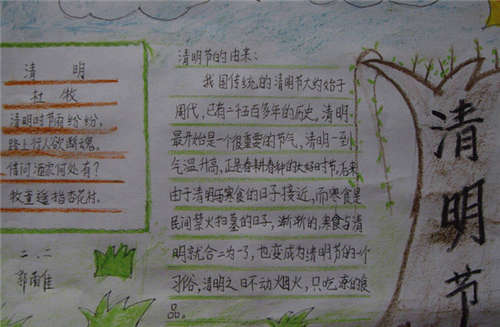 清 明
杜 牧
清明时节雨纷纷,
路上行人欲断魂。
借问酒家何处有?
牧童遥指杏花村。
二、二
郭雨佳
清明节的由来:
我国传统的清明节大约始于
周代,已有二千五百多年的历史。清明
最开始是一个很重要的节气,清明一到
气温升高,正是春耕春种的大好时节,后来
由于清明与寒食的日子接近,而寒食是
民间禁火扫墓的日子,渐渐的,寒食与清
明就合二为一了,也变成为清明节的一个
习俗,清明之日不动烟火,只吃凉的食
品。
清明节